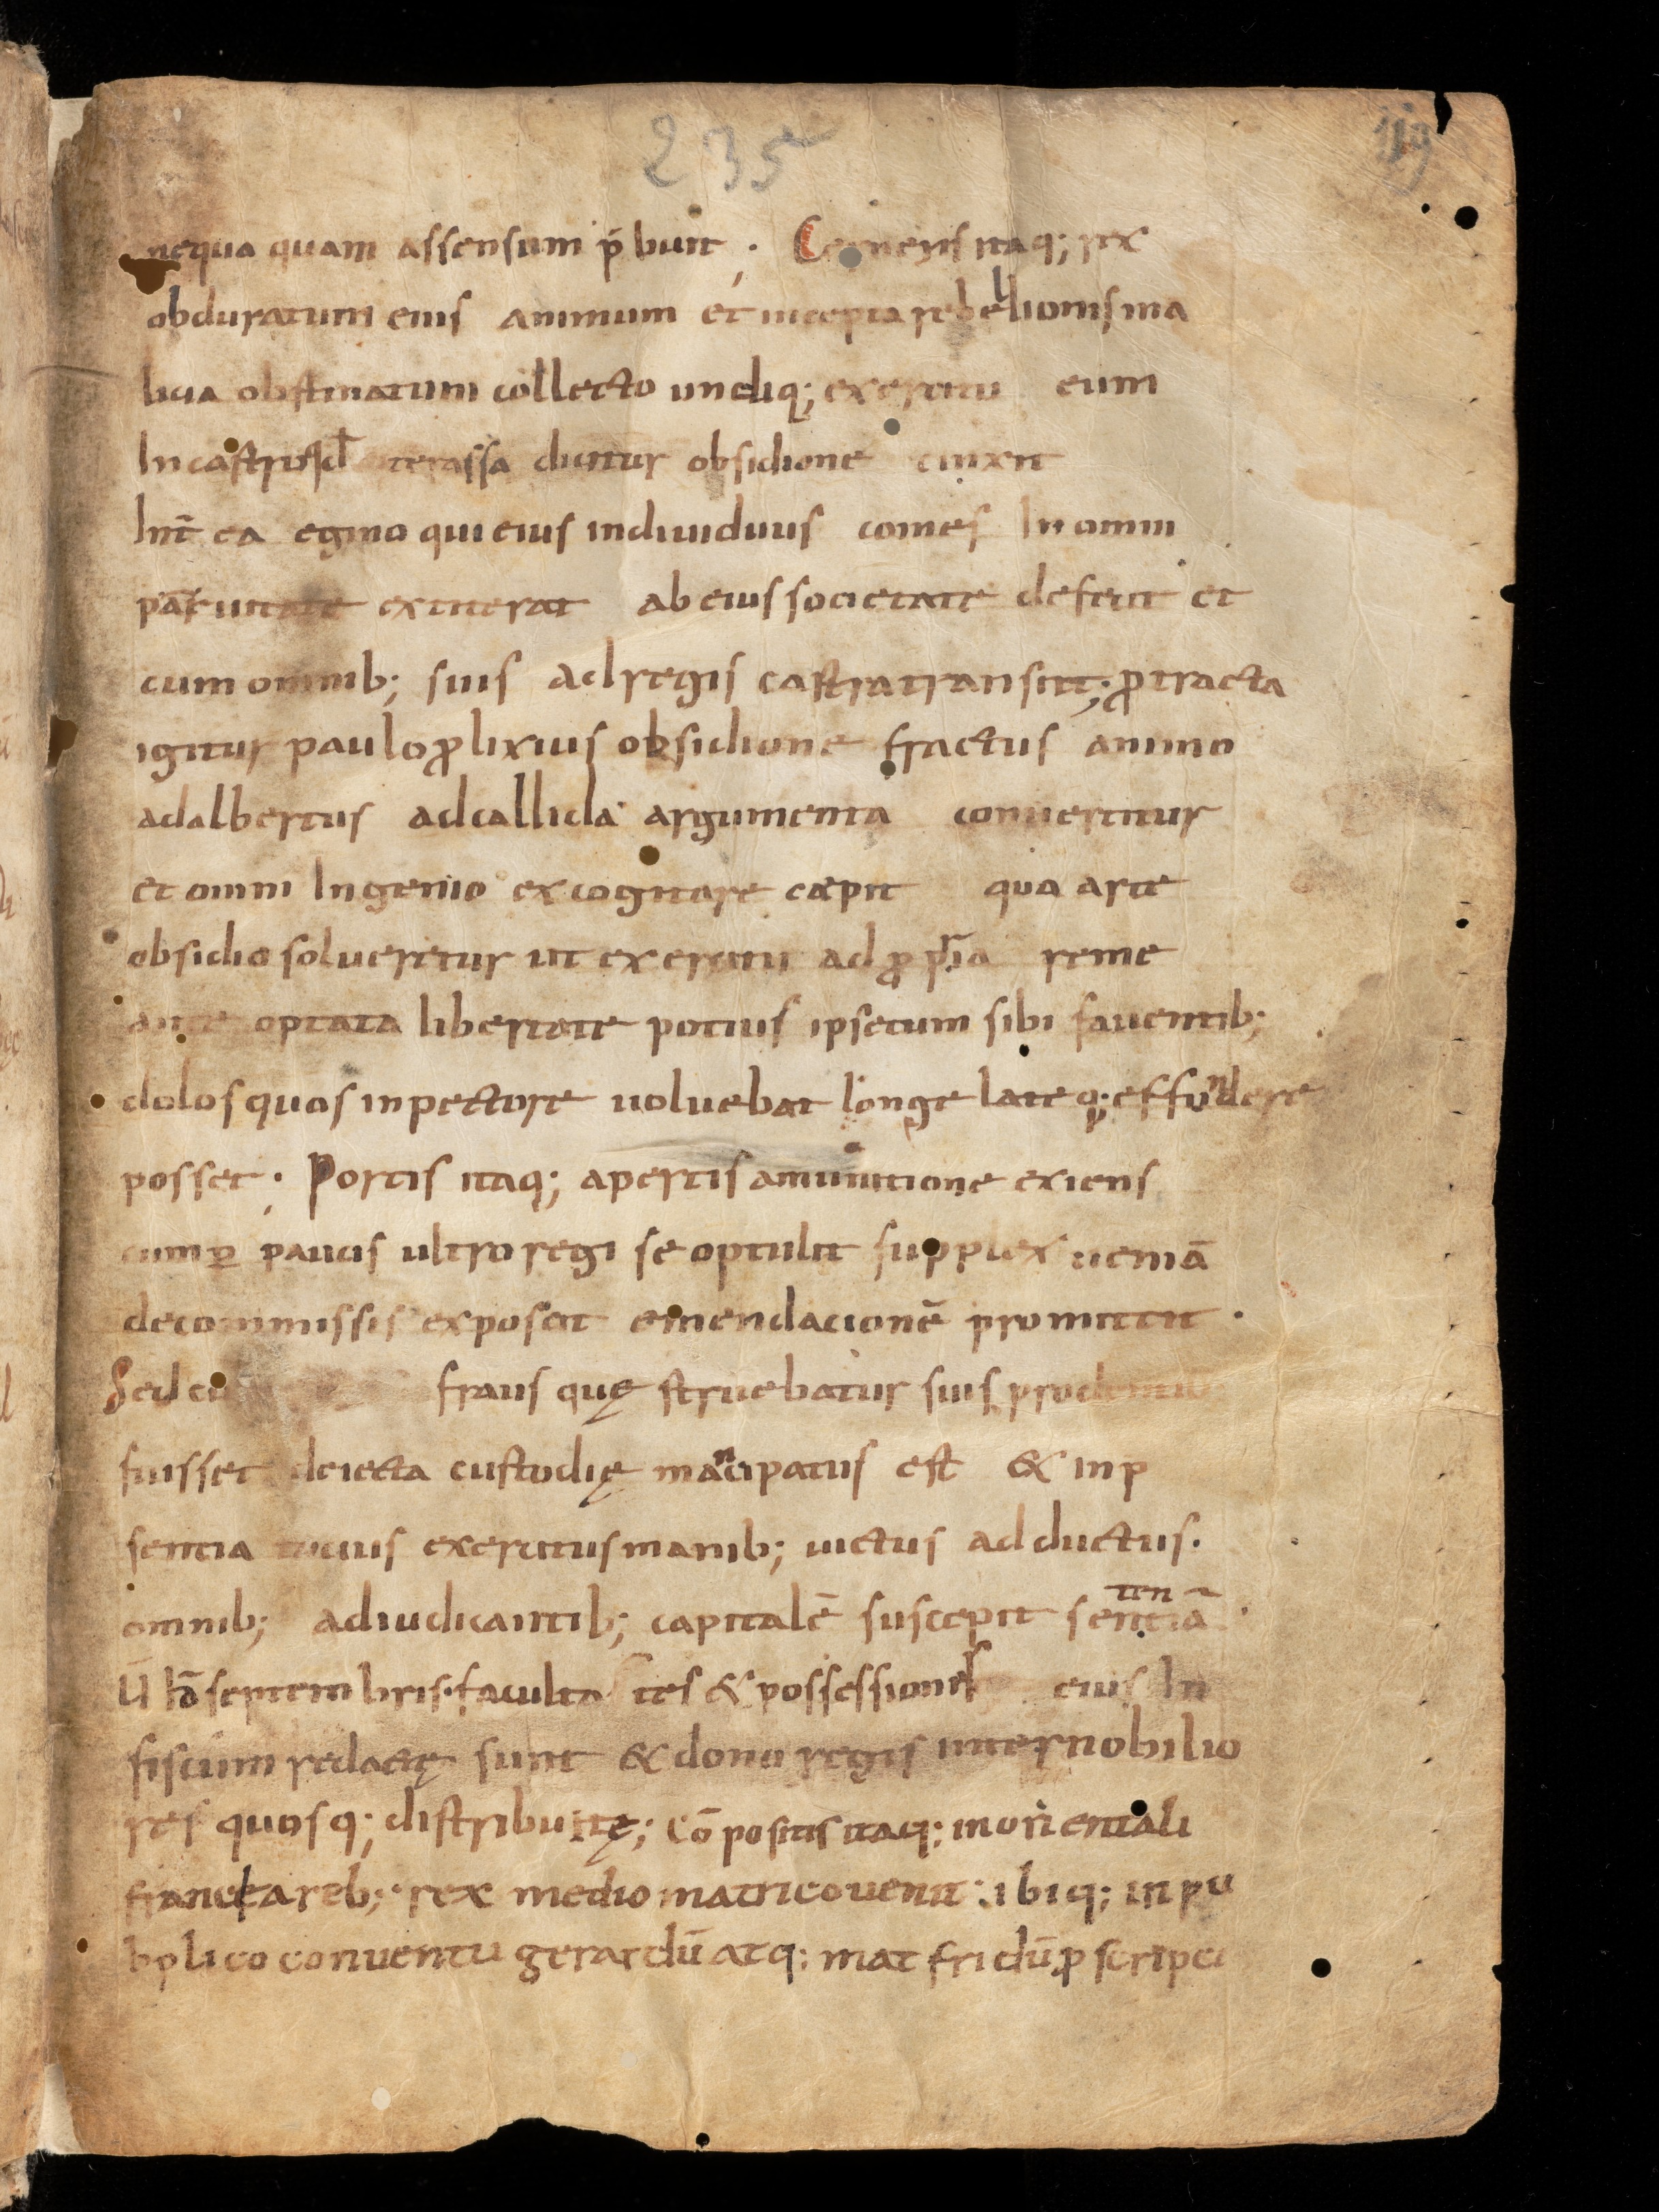 235
119
nequa quam assensum p̄buit ; Cernens itaq; rex
obduratum eius animum et incepta rebellionis ma
licia obstinatum collecto undiq; exercitu eum
In castris terassa dicitur obsidione cinxit
Int̄ ea egino qui eius indiuiduus comes In omni
extiterat ab eius societate defecit et
cum omnib; suis ad regis castra transiit; ꝓtracta
igitur paulo ꝓlixius obsidione fractus animo
adalbertus ad callida argumenta conuertitur
et omni Ingenio excogitare cæpit qua arte
obsidio solueretur ut exercitu ad ꝓpria reme
ante optata libertate potius ipse cum sibi fauentib;
dolos quos in pectore uoluebat longe lateq; effundere
posset ; Portis itaq; apertis a munitione exiens
cum ꝑ paucis ultro regi se optulit supplex ueniā
de commissis exposcit emendacionē promittit .
Sed cu fraus quę struebatur suis
fuisset deiecta custodię mancipatus est & in p
sentia tocius exercitus manib; uictus adductus .
omnib; adiudicantib; capitalē suscepit sententiā .
U kƚ septembris . facultates & possessiones eius In
fiscum redactę sunt & dono regis inter nobilio
res quosq; distributę; Cō positis itaq; in orientali
francia reb; rex medio matrico uenit ; ibiq; in pu
bplico conuentu gerardū atq; mat fridū ꝓ scripci